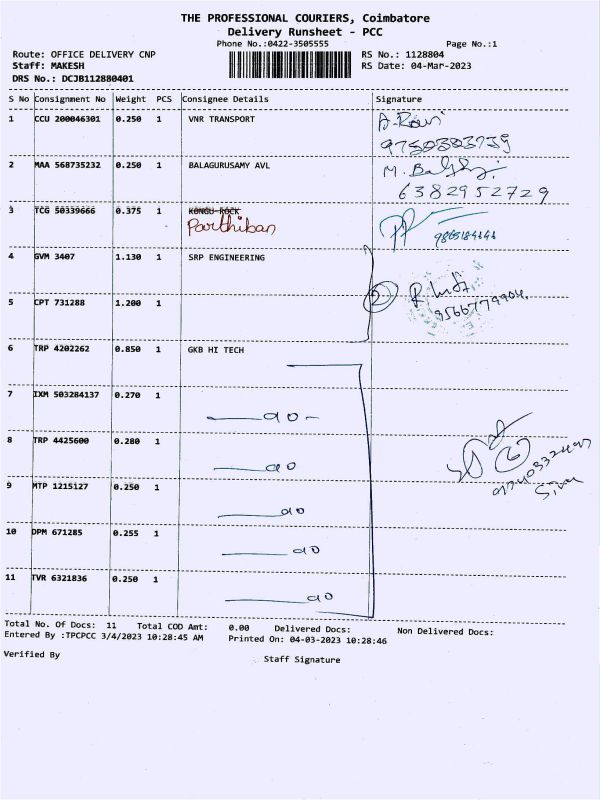 THE PROFESSIONAL COURIERS, Coimbatore
Delivery Runsheet - PCC
Phone No.:0422-3505555
Page No.:1
Route: OFFICE DELIVERY CNP
RS No.: 1128804
Staff: MAKESH
RS Date: 04-Mar-2023
DRS No.: DCJB112880401
S No Consignment No Weight PCS Consignee Details Signature
1 CCU 200046301 0.250 1 VNR TRANSPORT
A. Ravi
2 MAA 568735232 0.250 1 BALAGURUSAMY AVL
6382952729
3 TCG 50339666 0.375 1 KONGU ROCK
Parthiban
4 GVM 3407 1.130 1 SRP ENGINEERING
2
5 CPT 731288 1.200 1
9566779904
6 TRP 4202262 0.850 1 GKB HI TECH
7 IXM 503284137 0.270 1
8 TRP 4425600 0.280 1
6
9 MTP 1215127 0.250 1
Siva
10 DPM 671285 0.255 1
11 TVR 6321836 0.250 1
Total No. Of Docs: 11 Total COD Amt: 0.00 Delivered Docs: Non Delivered Docs:
Entered By :TPCPCC 3/4/2023 10:28:45 AM Printed On: 04-03-2023 10:28:46
Verified By
Staff Signature